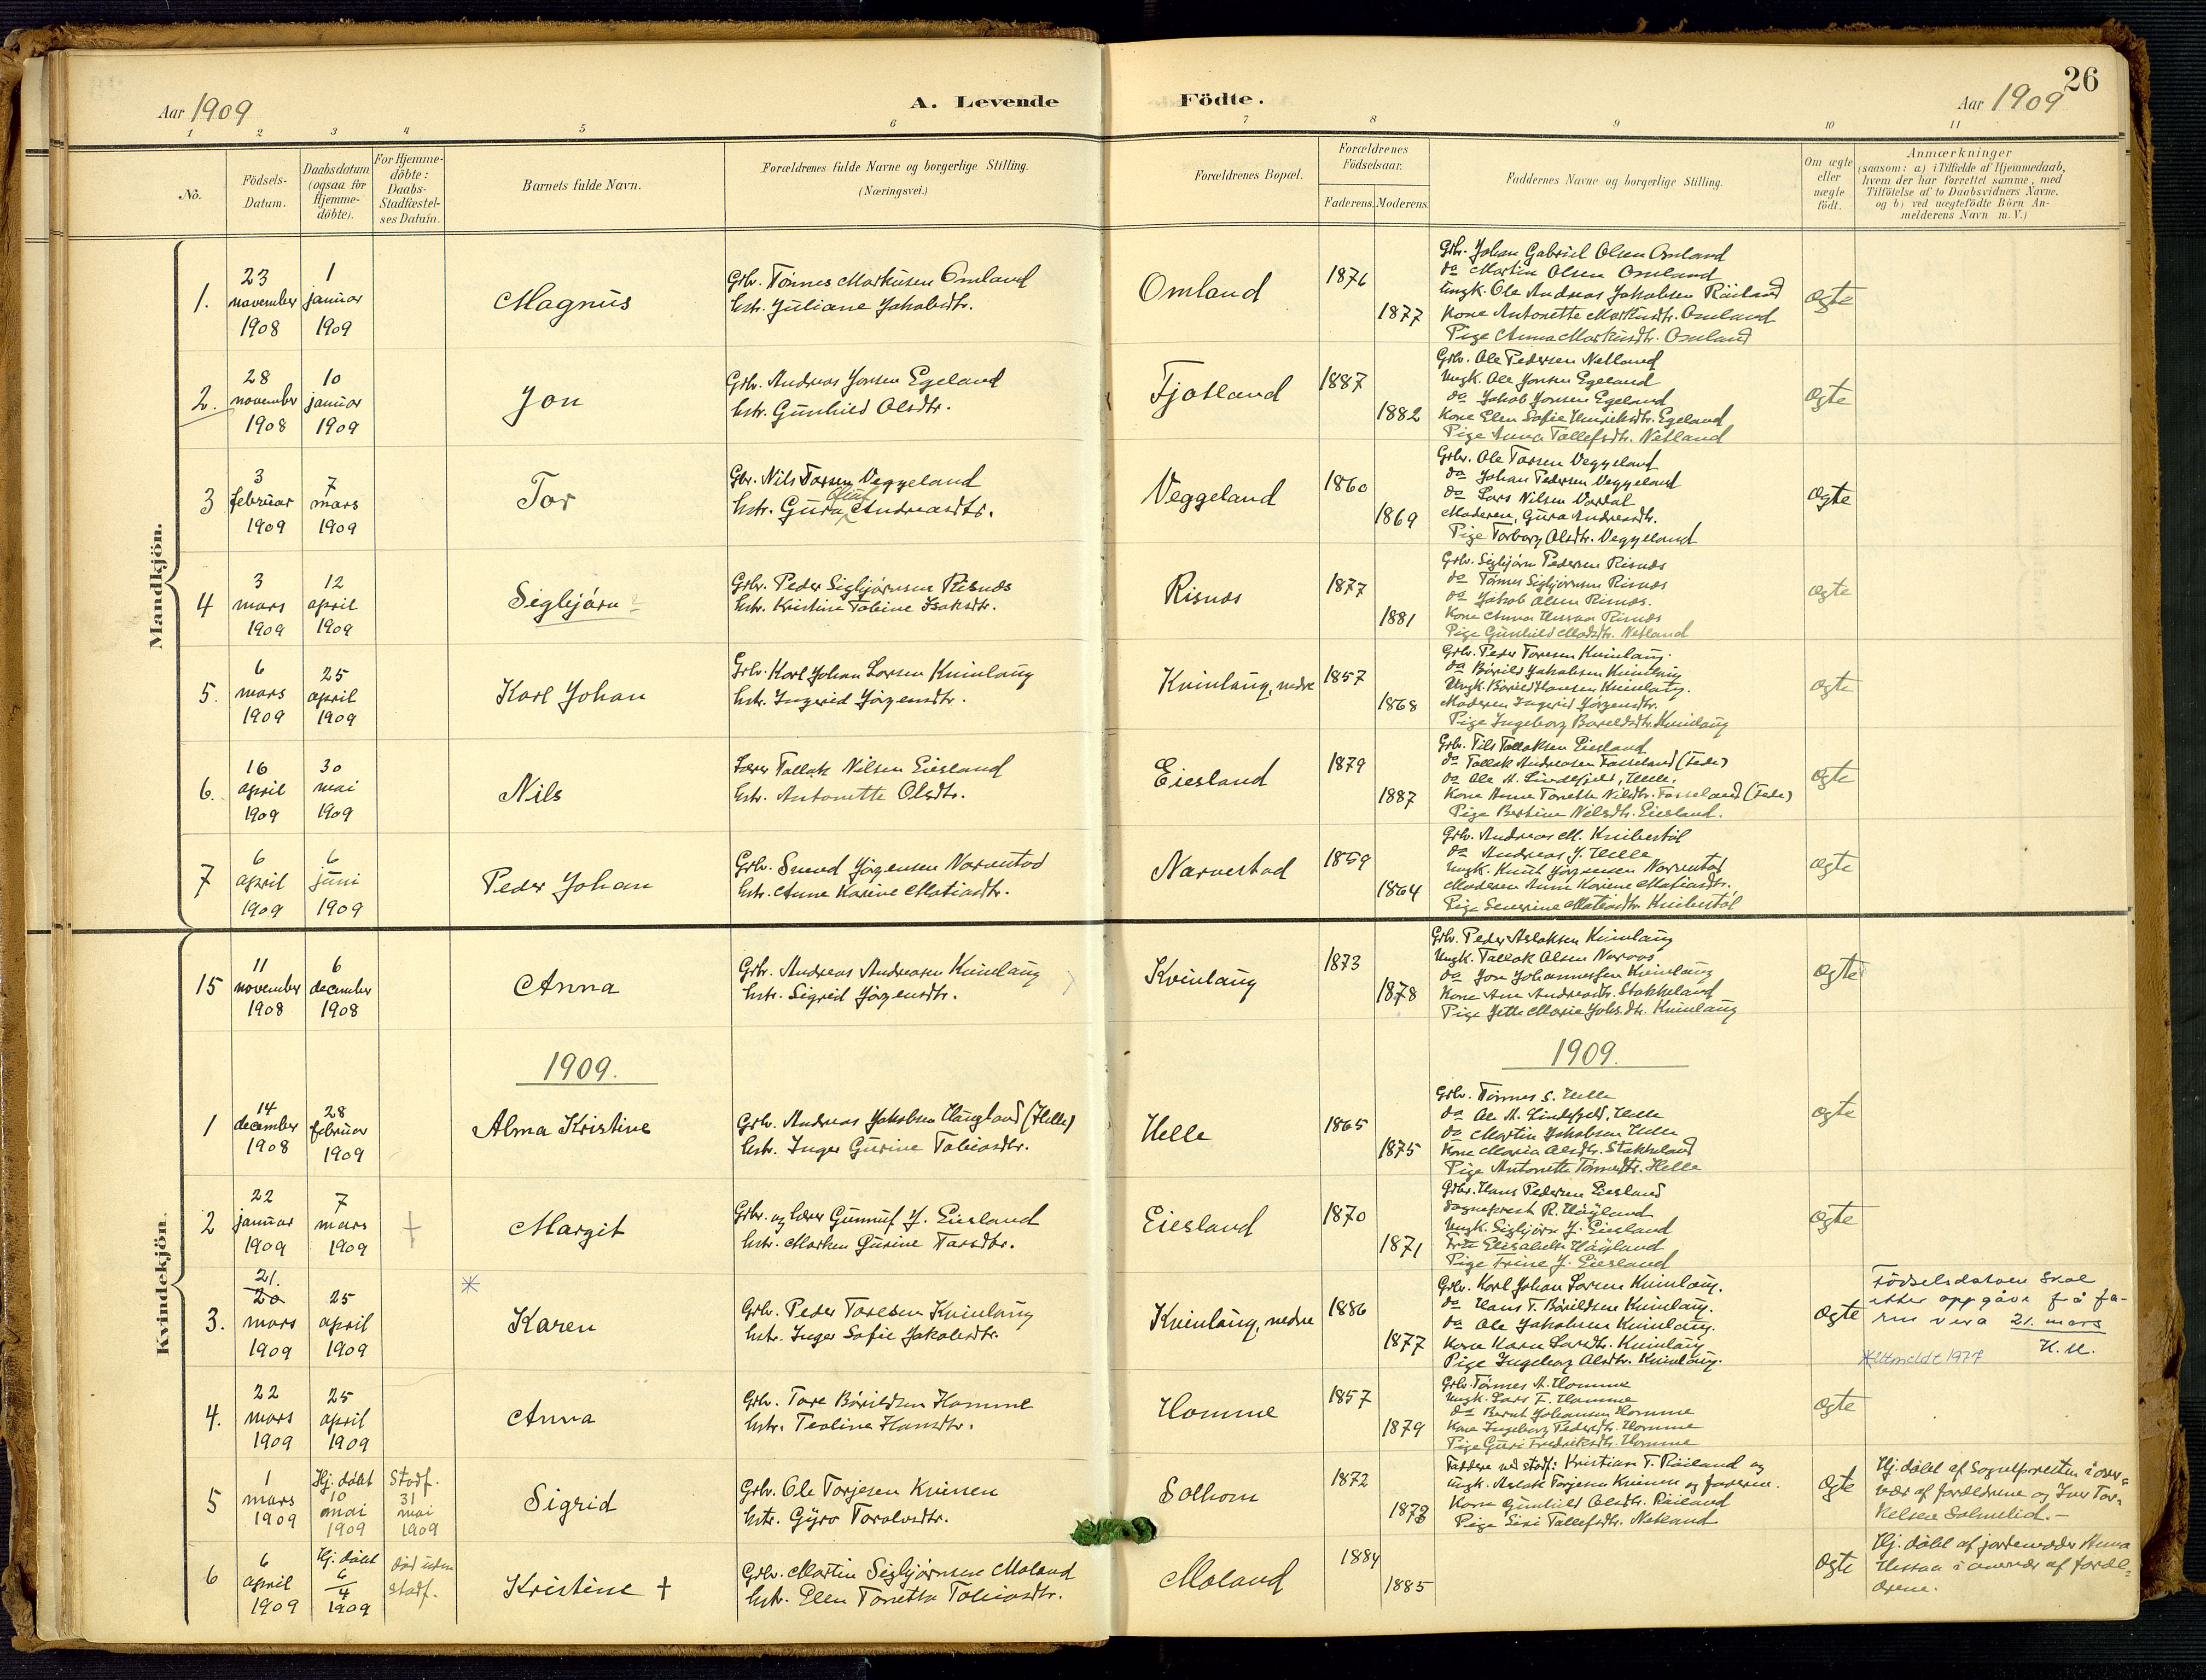 26
Aar 1909
A. Levende
Födte.
Aar 1909
1
2
3
4
5
6
7
8
9
10
11
No.
Födsels-
Datum.
Daabsdatum
(ogsaa for
Hjemme-
döbte).
For Hjemme-
döbte:
Daabs-
Stadfæstel-
ses Datum.
Barnets fulde Navn.
Forældrenes fulde Navne og borgerlige Stilling.
(Næringsvei.)
Forældrenes Bopæl.
Forældrenes
Födselsaar.
Faderens.
Moderens.
Faddernes Navne og borgerlige Stilling.
Om ægte
eller
uægte
födt.
Anmærkninger
(saasom: a) i Tilfælde af Hjemmedaab,
hvem der har forrettet samme, med
Tilföielse af to Daabsvidners Navne.
og b) ved uægtefödte Börn An-
melderens Navn m. V.)
Mandkjön.
1.
23
november
1908
1
januar
1909
Magnus
Grbr. Tönnes Markusen Omland
hstr. Juliane Jakobsdtr.
Omland
1876
1877
Grbr. Johan Gabriel Olsen Omland
do Martin Olsen Omland
Ungk. Ole Andreas Jakobsen Röiland
Kone Antonette Markusdtr. Omland
Pige Anna Markusdtr. Omland
ægte
2.
28
november
1908
10
januar
1909
Jon
Grbr. Andreas Jonsen Egeland
hstr. Gunhild Olsdtr.
Fjotland
1887
1882
Grbr. Ole Pedersen Netland
Ungk. Ole Jonsen Egeland
do Jakob Jonsen Egeland
Kone Elen Sofie Henriksdtr. Egeland
Pige Anna Tallefsdtr. Netland
ægte
3
3
februar
1909
7
mars
1909
Tor
Gbr. Nils Torsen Veggeland
hstr. Gura Andreasdtr.
Veggeland
1860
1869
Grbr. Ole Torsen Veggeland
do Johan Pedersen Veggeland
do Lars Nilsen Vordal
Moderen, Gura Andreasdtr.
Pige Torborg Olsdtr. Veggeland
ægte
4
3
mars
1909
12
april
1909
Sigbjörn
Grbr. Peder Sigbjörnsen Risnes
hstr. Kristine Tobine Isaksdtr.
Risnes
1877
1881
Grbr. Sigbjörn Pedersen Risnes
do Tönnes Sigbjörnsen Risnes
do Jakob Olsen Risnes.
Kone Anna Ussaa Risnes
Pige Gunhild Madsdtr. Netland
ægte
5.
6
mars
1909
25
april
1909
Karl Johan
Grbr. Karl Johan Larsen Kvinlaug
hstr. Ingerid Jörgensdtr.
Kvinlaug, nedre
1857
1868
Grbr. Peder Toresen Kvinlaug.
do Börild Jakobsen Kvinlaug
Ungk. Börild Hansen Kvinlaug.
Moderen Ingerid Jörgensdtr.
Pige Ingeborg Börildsdtr. Kvinlaug
ægte
6.
16
april
1909
30
mai
1909
Nils
Lærer Tallak Nilsen Eiesland
hstr. Antonette Olsdtr.
Eiesland
1879
1887
Grbr. Nils Tallaksen Eiesland
do Tallak Andreasen Fosseland (Fede)
do Ole A. Lindefjeld, Helle.
Kone Anne Tonette Nilsdtr. Fosseland (Fede)
Pige Bertine Nilsdtr. Eiesland.
ægte
7
6
april
1909
6
juni
1909
Peder Johan
Grbr. Svend Jörgensen Narvestad
hstr. Anne Karine Matiasdtr.
Narvestad
1859
1864
Grbr. Andreas M. Knibestöl
do Andreas J. Helle
Ungk. Knut Jörgensen Narvestad
Moderen Anne Karine Matiasdtr.
Pige Severine Matiasdtr. Knibestöl
ægte
Kvindekjön.
15
11
november
1908
6
december
1908
Anna
Grbr. Andreas Andreasen Kvinlaug
hstr. Sigrid Jörgensdtr.
Kvinlaug
1873
1878
Grbr. Peder Aslaksen Kvinlaug
Ungk. Tallak Olsen
do Jon Johannessen Kvinlaug
Kone Ane Andreasdtr. Stakkeland
Pige Jette Marie Johsdtr. Kvinlaug
ægte
1909.
1909.
1
14
december
1908
28
februar
1909
Alma Kristine
Grbr. Andreas Jakobsen Haugland (Helle)
hstr. Inger Gurine Tobiasdtr.
Helle
1865
1875
Grbr. Tönnes S. Helle
do Ole A. Lindefjeld, Helle
do Martin Jakobsen Helle
Kone Maria Olsdtr. Stakkeland
Pige Antonette Tönnesdtr. Helle
ægte
2
22
januar
1909
7
mars
1909
+
Margit
Grbr. og lærer Gunnuf J. Eiesland
hstr. Marken Gurine Tarsdtr.
Eiesland
1870
1871
Grbr. Hans Pedersen Eiesland
Sogneprest R. Höyland
Ungk. Sigbjörn J. Eiesland
Fru Elisabeth Höyland
Pige Trine J. Eiesland
ægte
3.
21.
20
mars
1909
25
april
1909
*
Karen
Grbr. Peder Toresen Kvinlaug
hstr. Inger Sofie Jakobsdtr.
Kvinlaug, nedre
1886
1877
Grbr. Karl Johan Larsen Kvinlaug.
do Hans T. Börildsen Kvinlaug.
do Ole Jakobsen Kvinlaug.
Kone Karen Larsdtr. Kvinlaug
Pige Ingeborg Olsdtr. Kvinlaug.
ægte
Födselsdatoen skal
etter oppgåve frå fa-
ren vera 21. mars
K. U.
* Utmeldt 1977
4.
22
mars
1909
25
april
1909
Anna
Grbr. Tore Börildsen Homme
hstr. Teoline Hansdtr.
Homme
1857
1879
Grbr. Tönnes A. Homme
Ungk. Lars T. Homme
do Bernt Johansen Homme
Kone Ingeborg Pedersdtr. Homme
Pige Guri Fredriksdtr. Homme
ægte
5
1
mars
1909
Hj. döbt
10
mai
1909
Stadf.
31
mai
1909
Sigrid
Grbr. Ole Torjesen Kvinen
hstr. Gyro Taralvsdtr.
Solhom
1872
1878
Faddere ved stadf: Kristian T. Röiland og
Ungk. Aslak Torjesen Kvinen og faderen.
Kone Gunhild Olsdtr. Röiland
Pige Siri Tallefsdtr. Netland
ægte
Hj. döbt af Sognepresten i over=
vær af forældrene og Iver Tor=
kelsen Solmelid.-
6
6
april
1909
Hj. döbt
6
4
1909
död uden
stadf.
Kristine +
Grbr. Martin Sigbjörnsen Moland
hstr. Elen Tonette Tobiasdtr.
Moland
1884
1885
ægte
Hj. döbt af jordemoder Anna
Ussaa i overvær af foræl=
drene.